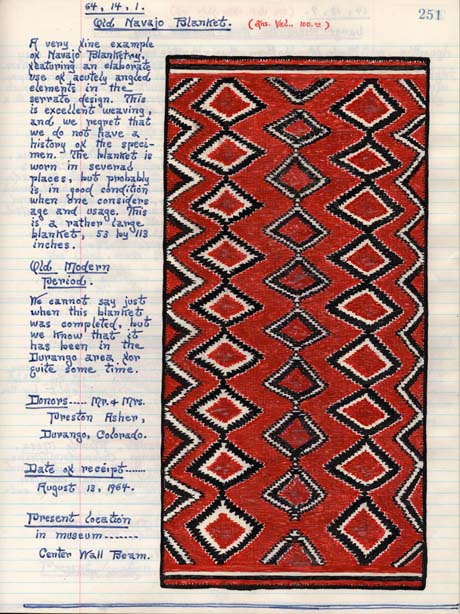 251
64, 14, 1.
Old Navajo Blanket. (Ins. Val.. 100.00)
A very fine example
of Navajo Blanketry,
featuring an elaborate
use of acutely angled
elements in the
serrate design. This
is excellent weaving,
and we regret that
we do not have a
history of the speci-
men. The blanket is
worn in several
places, but probably
is in good condition
when one considers
age and usage. This
is a rather large
blanket, 53 by 113
inches.
Old Modern
Period.
We cannot say just
when this blanket
was completed, but
we know that it
has been in the
Durango area for
quite some time.
Donors..... Mr. & Mrs.
Preston Asher,
Durango, Colorado.
Date of receipt.......
August 13, 1964.
Present location
in museum........
Center Wall Beam.